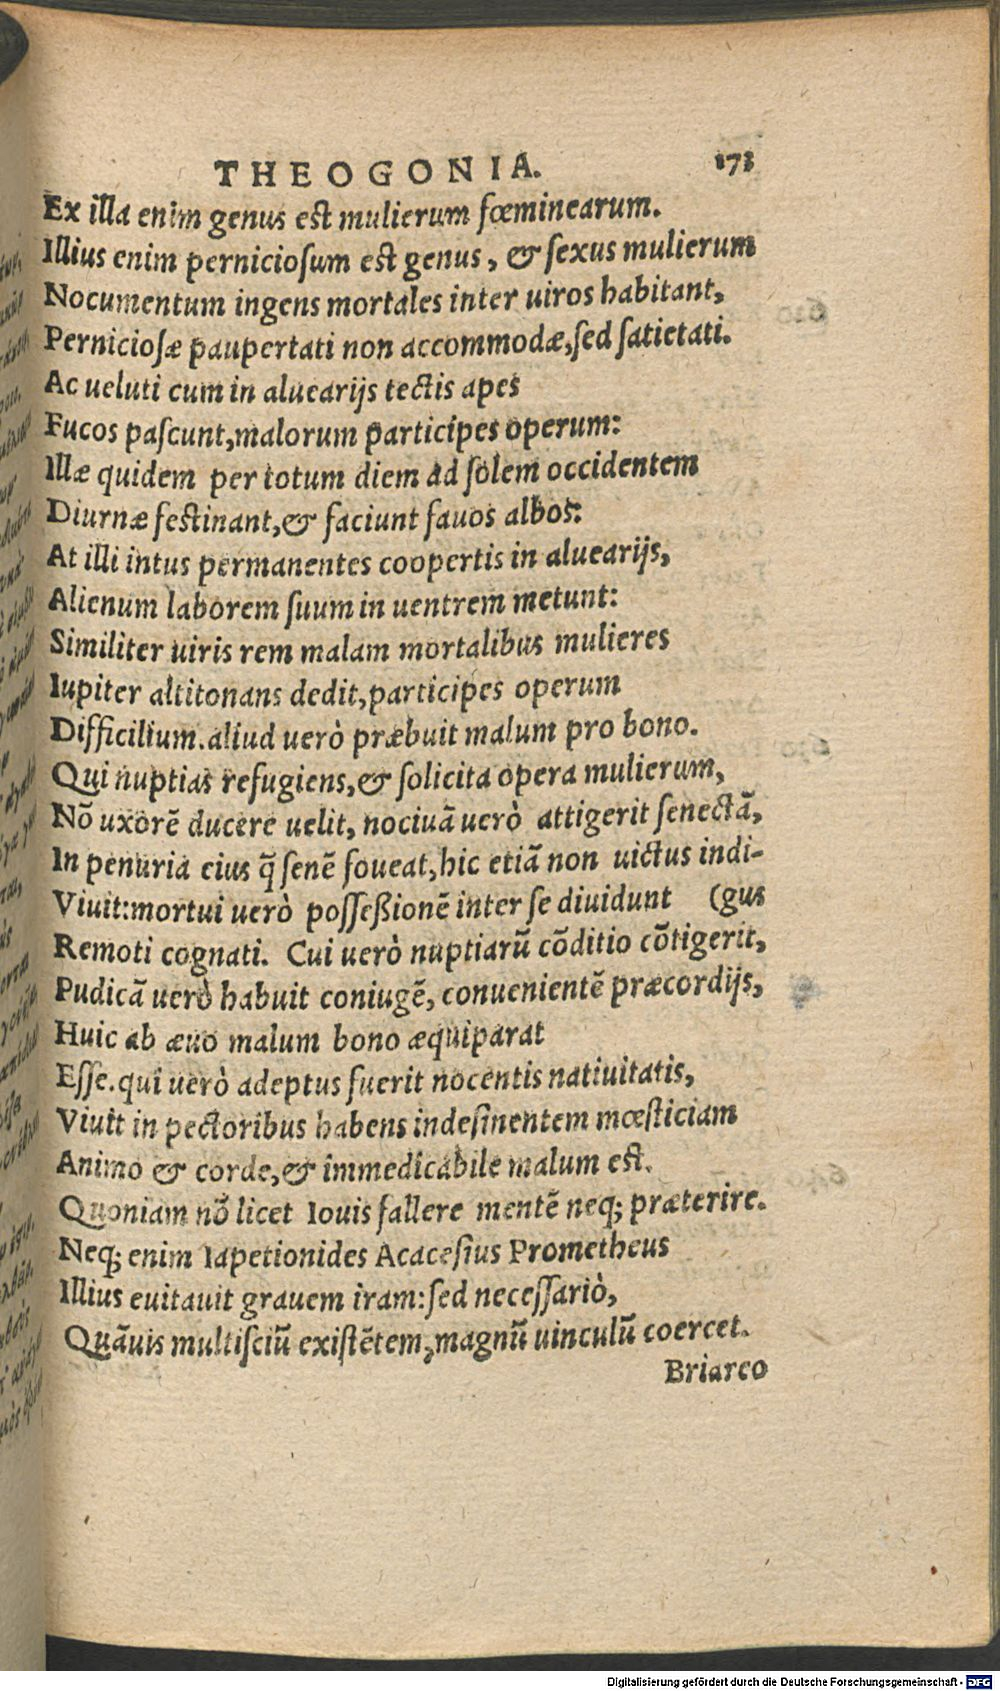 THEOGONIA. 173
Ex illa enim genus est mulierum fœminearum.
Illius enim perniciosum est genus, & sexus mulierum
Nocumentum ingens mortales inter uiros habitant,
Perniciosæ paupertati non accommodæ, sed satietati.
Ac ueluti cum in aluearijs tectis apes
Fucos pascunt, malorum participes operum:
Illæ quidem per totum diem ad solem occidentem
Diurnæ festinant, & faciunt fauos albos:
At illi intus permanentes coopertis in aluearijs,
Alienum laborem suum in uentrem metunt:
Similiter uiris rem malam mortalibus mulieres
Iupiter altitonans dedit, participes operum
Difficilium. aliud uerò præbuit malum pro bono.
Qui nuptias refugiens, & solicita opera mulierum,
Nõ uxorẽ ducere uelit, nociuã uerò attigerit senectã,
In penuria eius q̃ senẽ foueat, hic etiã non uictus indi-
Viuit: mortui uerò posseßionẽ inter se diuidunt (gus
Remoti cognati. Cui uerò nuptiarũ cõditio cõtigerit,
Pudicã uerò habuit coniugẽ, conuenientẽ præcordijs,
Huic ab æuo malum bono æquiparat
Esse. qui uerò adeptus fuerit nocentis natiuitatis,
Viuit in pectoribus habens indesinentem mœsticiam
Animo & corde, & immedicabile malum est.
Quoniam nõ licet Iouis fallere mentẽ neq; præterire.
Neq; enim Iapetionides Acacesius Prometheus
Illius euitauit grauem iram: sed necessariò,
Quãuis multisciũ existẽtem, magnũ uinculũ coercet.
Briareo
Digitalisierung gefördert durch die Deutsche Forschungsgemeinschaft - DFG